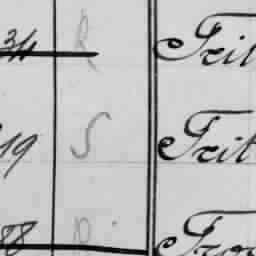 34 R Frit
19 S Frit
88 R Fro